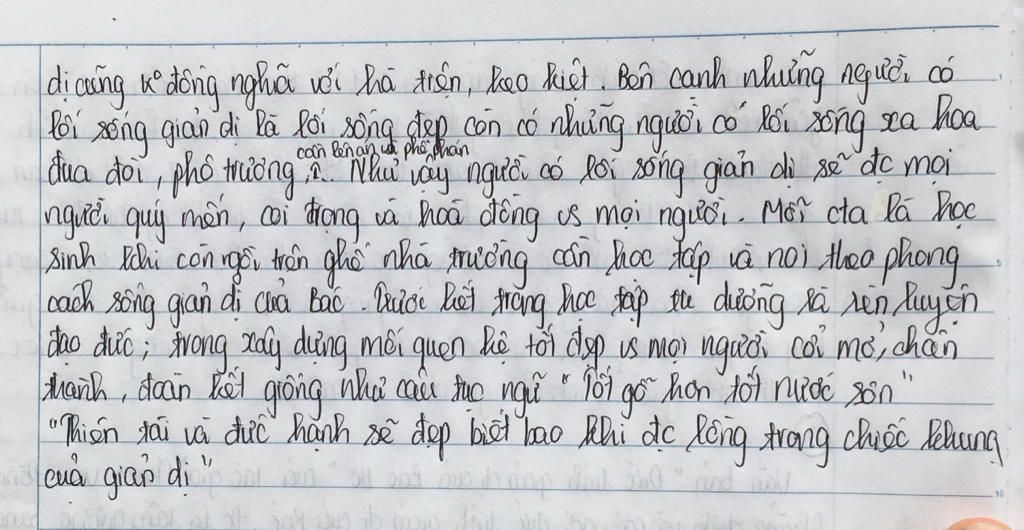 dị cũng k° đồng nghĩa với hà tiện, keo kiệt. Bên cạnh những người có
lối sống giản dị là lối sống đẹp còn có những người có lối sống xa hoa
đua đòi, phô trương,... Như vậy người có lối sống giản dị sẽ đc mọi
người quý mến, coi trọng và hoà đồng vs mọi người. Mỗi cta là học
sinh khi còn ngồi trên ghế nhà trường cần học tập và noi theo phong
cách sống giản dị của Bác. Trước hết trong học tập tu dưỡng là rèn luyện
đạo đức; trong xây dựng mối quen hệ tốt đẹp vs mọi người cởi mở, chân
thành, đoàn kết giống như câu tục ngữ "Tốt gỗ hơn tốt nước sơn"
"Thiên tài và đức hạnh sẽ đẹp biết bao khi đc lồng trong chiếc khung
của giản dị"